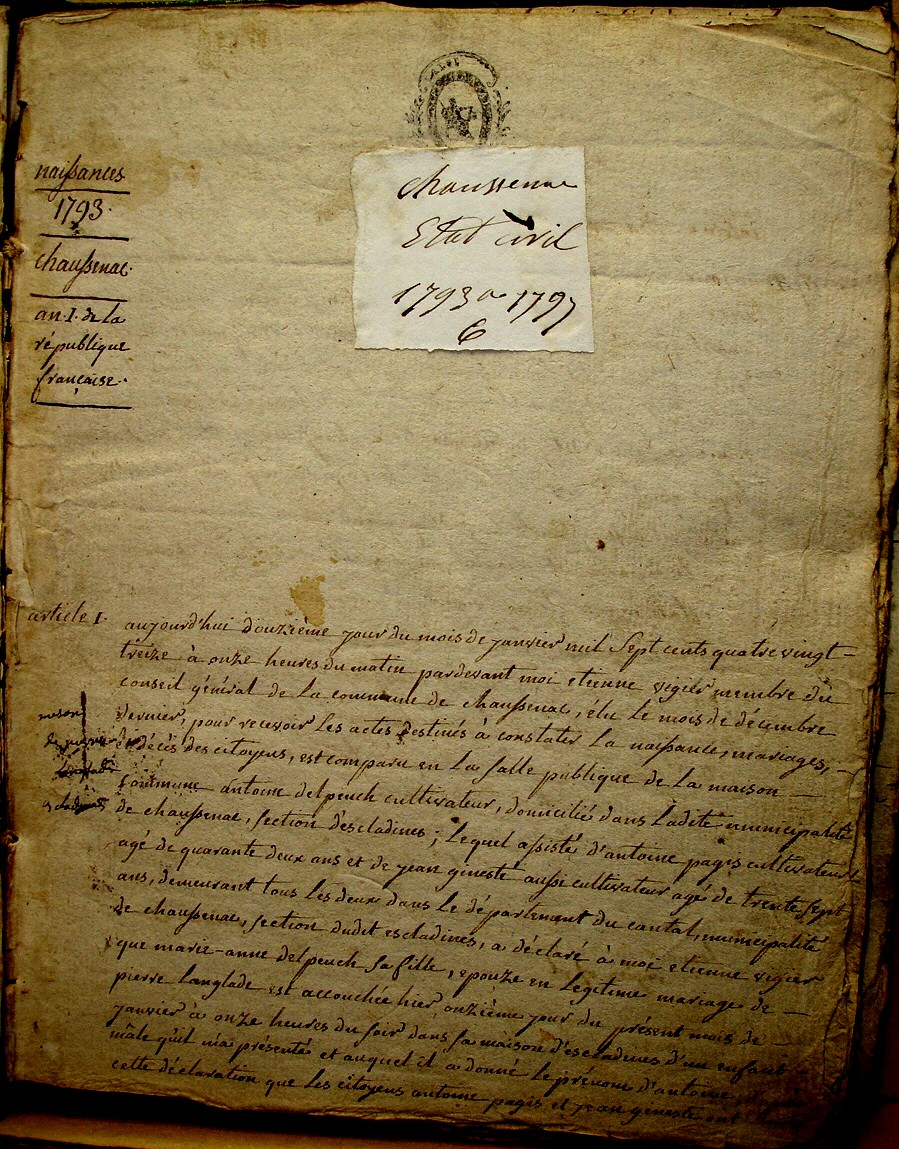 naissances
1793.
chaussenac.
an. I. de la
république
française.
Chaussenac
Etat civil
1793 a 1797
6
article I.
aujourd'hui douzième jour du mois de janvier mil sept cents quatre vingt-
treize à onze heures du matin pardevant moi etienne vigier membre du
conseil général de la commune de chaussenac, élu le mois de décembre
dernier, pour recevoir les actes destinés à constater la naissance, mariages,
et décès des citoyens, est comparu en la salle publique de la maison
commune antoine delpeuch cultivateur, domicilié dans ladite municipalité
de chaussenac, section d'escladines; lequel assisté d'antoine pagis cultivateur
agé de quarante deux ans et de jean gineste aussi cultivateur agé de trente sept
ans, demeurant tous les deux dans le département du cantal, municipalité
de chaussenac, section dudit escladines, a déclaré à moi etienne vigier
que marie-anne delpeuch sa fille, epouze en legitime mariage de
pierre langlade est accouchée hier, onzième jour du présent mois de
janvier à onze heures du soir dans sa maison d'escladines d'un enfant
mâle qu'il m'a présenté et auquel il a donné le prénom d'antoine
cette déclaration que les citoyens antoine pagis et jean gineste ont